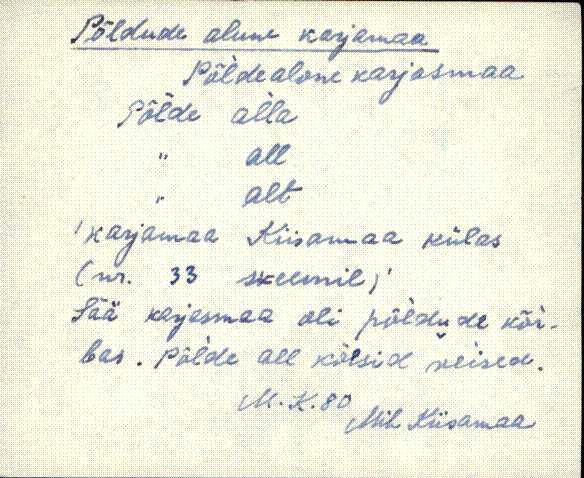 Põldude alune karjamaa
Põldealone karjasmaa
Põlde alla
" all
" alt
'karjamaa Kiisamaa külas
(nr. 33 skeemil)'
Sää karjasmaa oli põldude kõr-
bas. Põlde all kõisid veised.
M. K. 80
Mih Kiisamaa